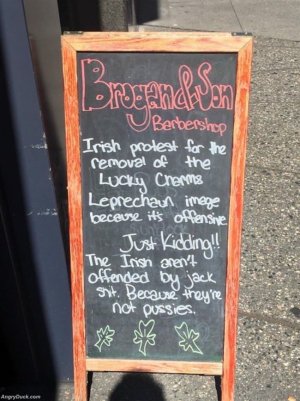 Brogan & Son
Barbershop
Irish protest for the
removal of the
Lucky Charms
Leprechaun image
because it's offensive
Just Kidding!!
The Irish aren't
offended by jack
shit. Because they're
not pussies.
AngryDuck.com